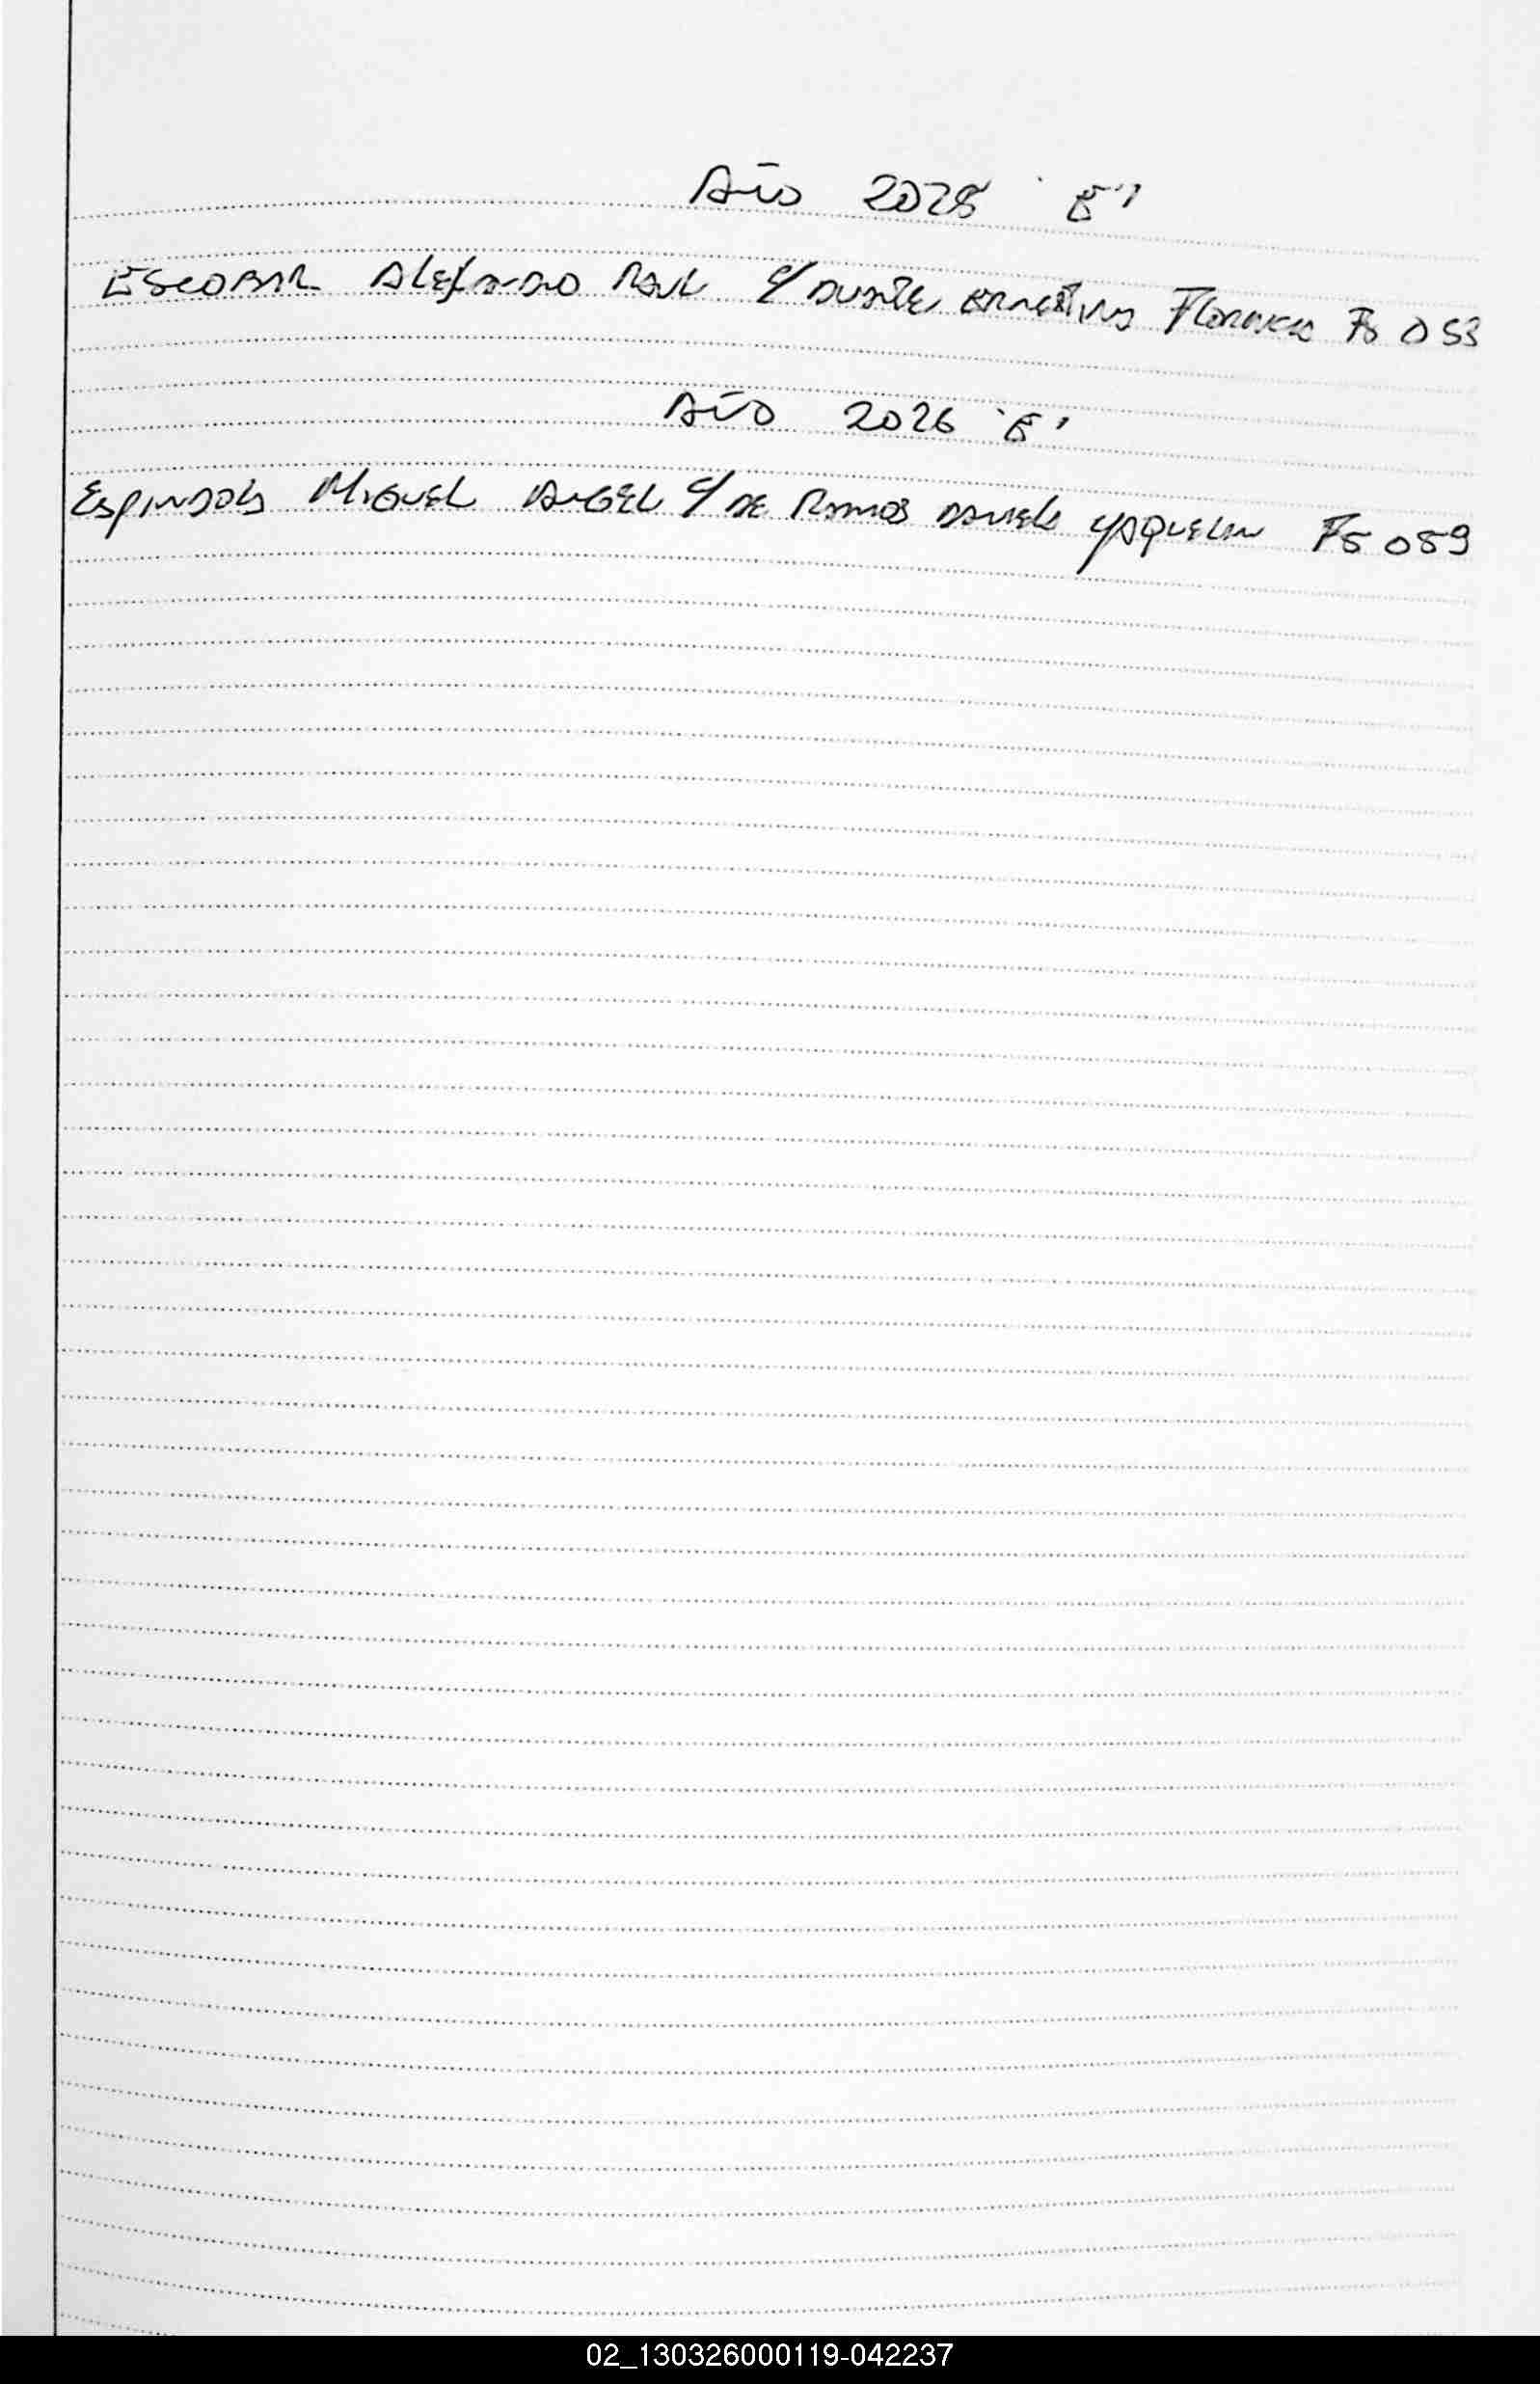 Año 2025 "E"
Escobar Alejandro Raul c/ Duarte Ernestina Florencia Fs 053
Año 2026 "E"
Espindola Miguel Angel c/ De Ramos Daniela Yaquelin Fs 059
02_130326000119-042237